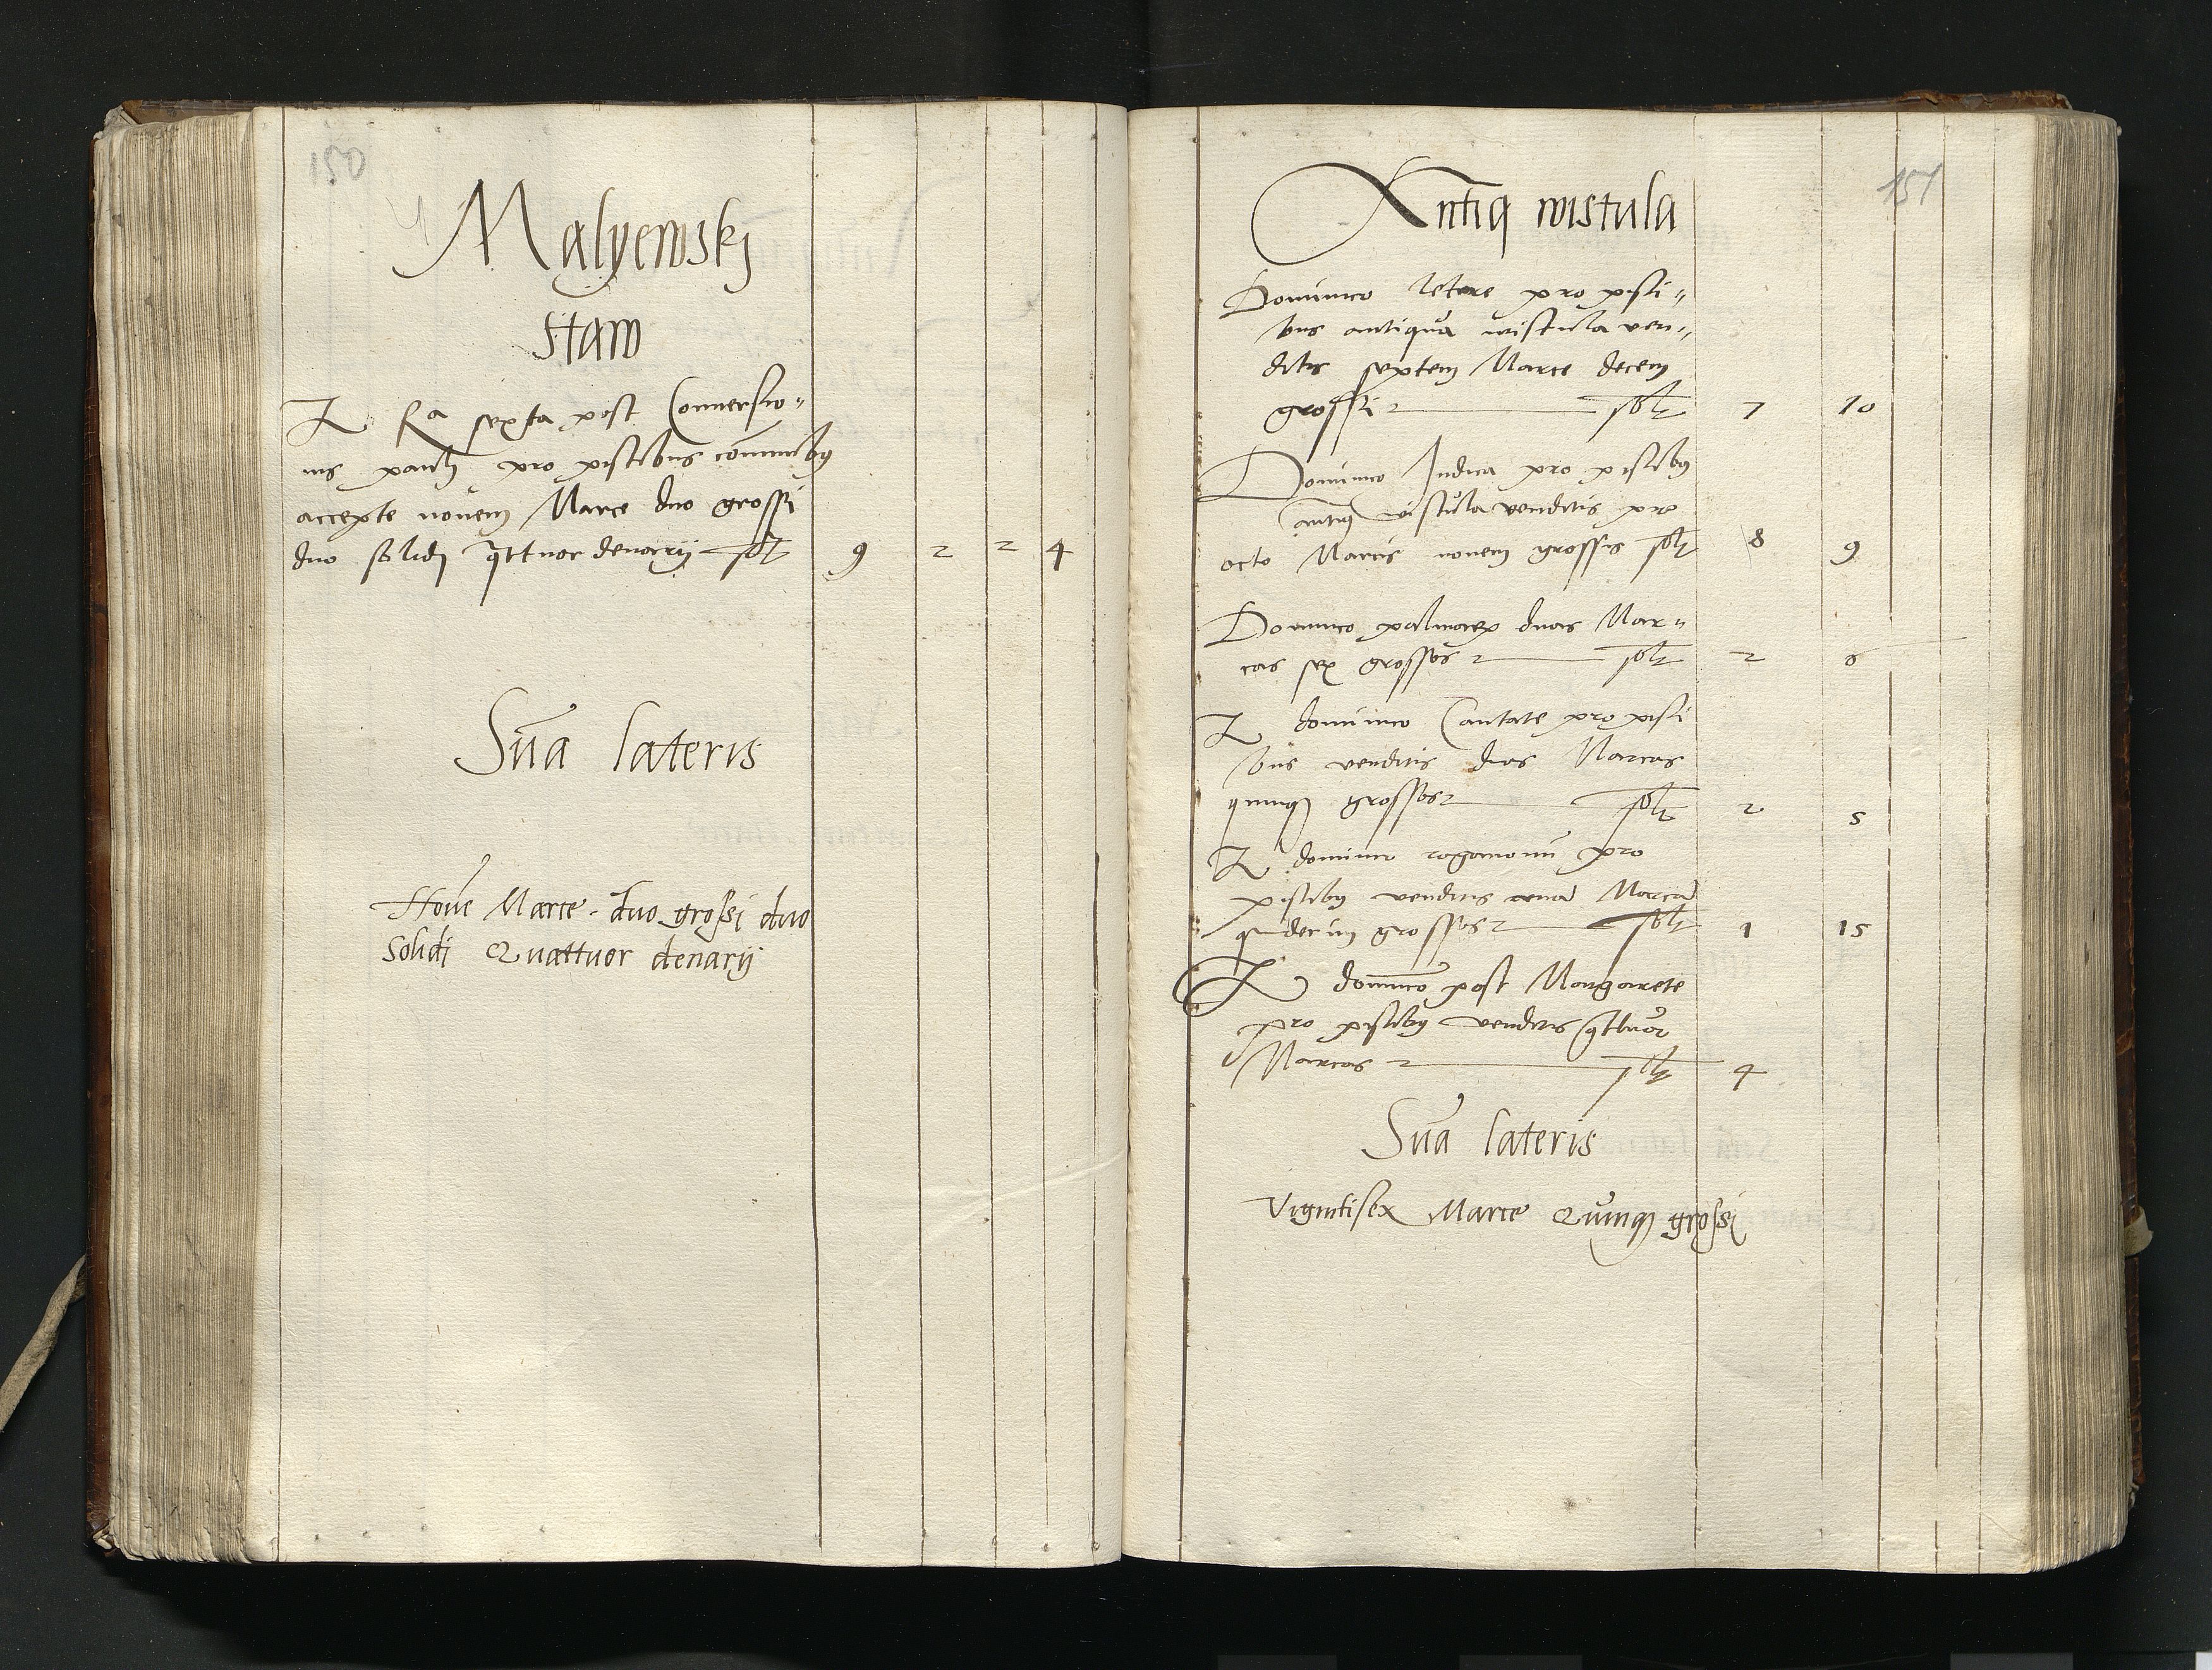 150
Malyewskj
staw
It fa sexta post Conuersio〃
nis pauli pro piscibus com̄unibꝫ
accepte nouem Marce duo grossi
duo solidi q̄ttuor denarij — 9 2 2 4
Sūa lateris
Noūe Marce duo grossj duo
Solidi Quattuor denarij
151
Antiq wistula
Dominico letare pro pisci〃
bus antiqua wistula ven〃
ditis septem Marce decem
grossi — 7 10
Dominico Judica pro piscibꝫ
antiq vistula venditis pro
octo Marcis nouem grossis 8 9
Dominico palmarꝫ duas Mar〃
cas sex grossos — 2 6
It dominico Cantate pro pisci
bus venditis duas Marcas
quinqꝫ grossos — 2 5
It dominico rogationū pro
piscibꝫ venditis vnā Marcā
quindecim grossos — 1 15
It dominico post Margarete
pro piscibꝫ venditis q̄ttuor
Marcas — 4
Sūa lateris
Vigintisex Marce Quinqꝫ grossj